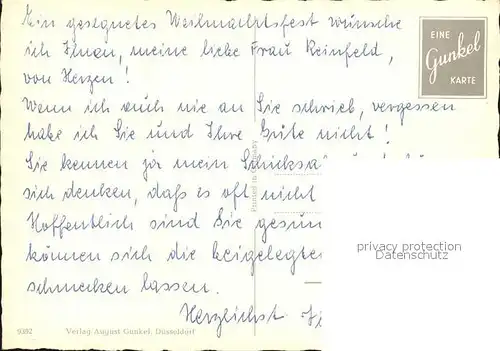 Ein gesegnetes Weihnachtsfest wünsche
ich Ihnen, meine liebe Frau Reinfeld,
von Herzen!
Wenn ich auch nie an Sie schrieb, vergessen
habe ich Sie und Ihre Güte nicht!
Sie kennen ja mein
sich denken, daß es oft nicht
Hoffentlich sind Sie
können sich die
schmecken lassen.
Herzlichst
EINE
Gunkel
KARTE
Printed in Germany
privacy protection
Datenschutz
Verlag August Gunkel, Düsseldorf